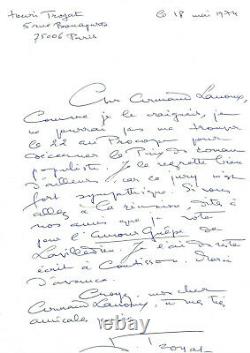 Henri Troyat
5 rue Bonaparte
75006 Paris
le 18 mai 1974
Cher Armand Lanoux,
Comme je le craignais, je
ne pourrai pas me trouver
le 22 au Procope pour
décerner le Prix du roman
populiste. Je le regrette bien
d'ailleurs, car ce jury m'est
fort sympathique. Si vous
allez à la réunion, dites à
nos amis que je vote
pour l'Amour Guêpe de
Lasilladère. J'ai de
écrit à Coutisson. Merci
d'avance.
Croyez, mon cher
Armand Lanoux, à ma très
amicale
H. Troyat
ebay